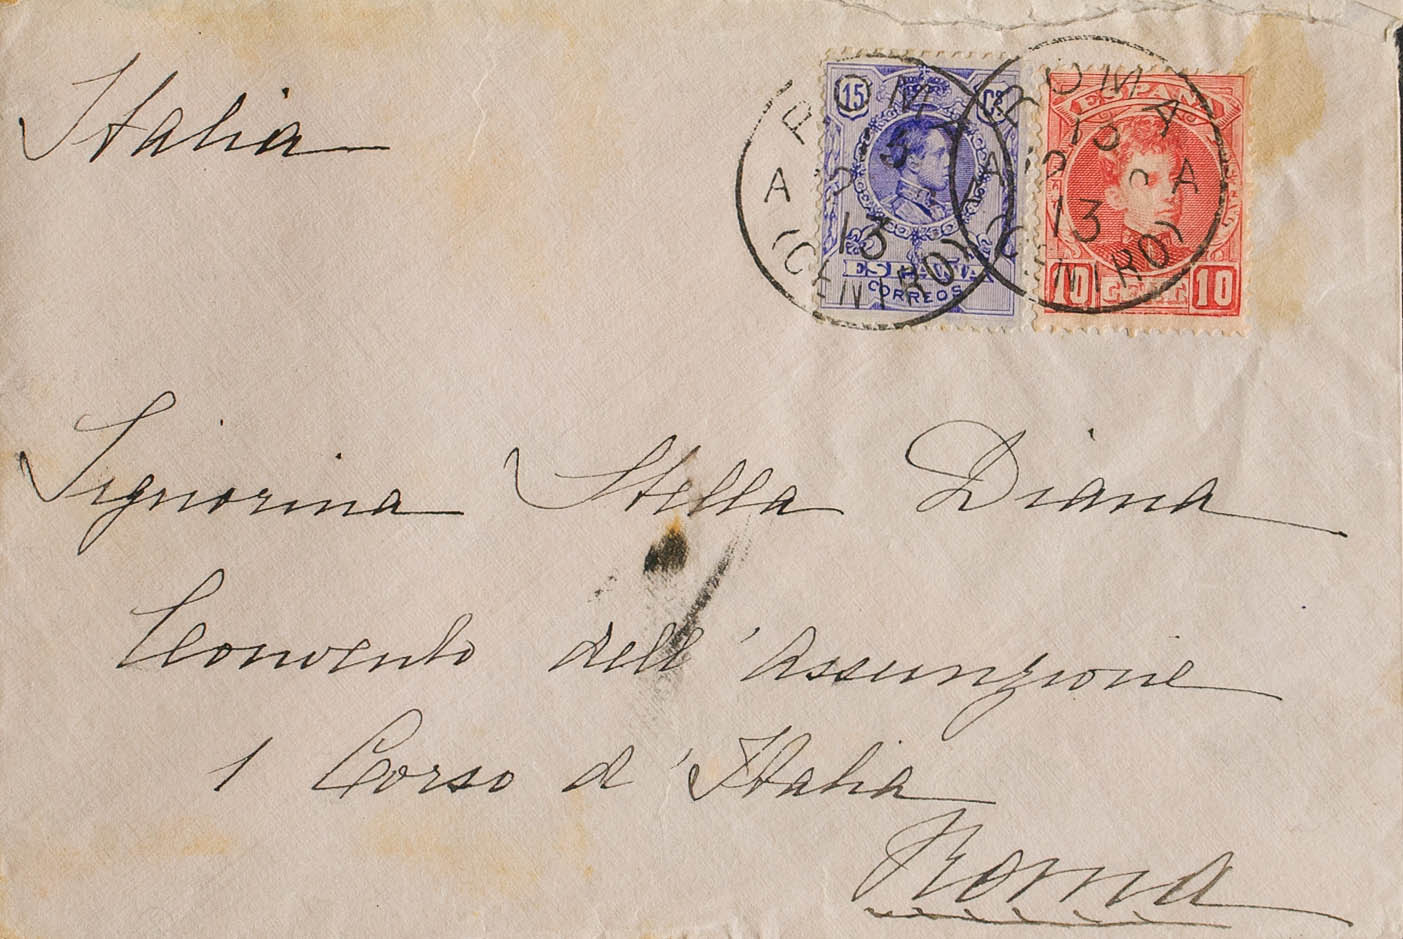 Italia
15 Cs
ESPAÑA
CORREOS
ESPAÑA
10 CENT. 10
ROMA
13
(CENTRO)
ROMA
13
(CENTRO)
Signorina Stella Diana
Convento dell'Assunzione
1 Corso d'Italia
Roma